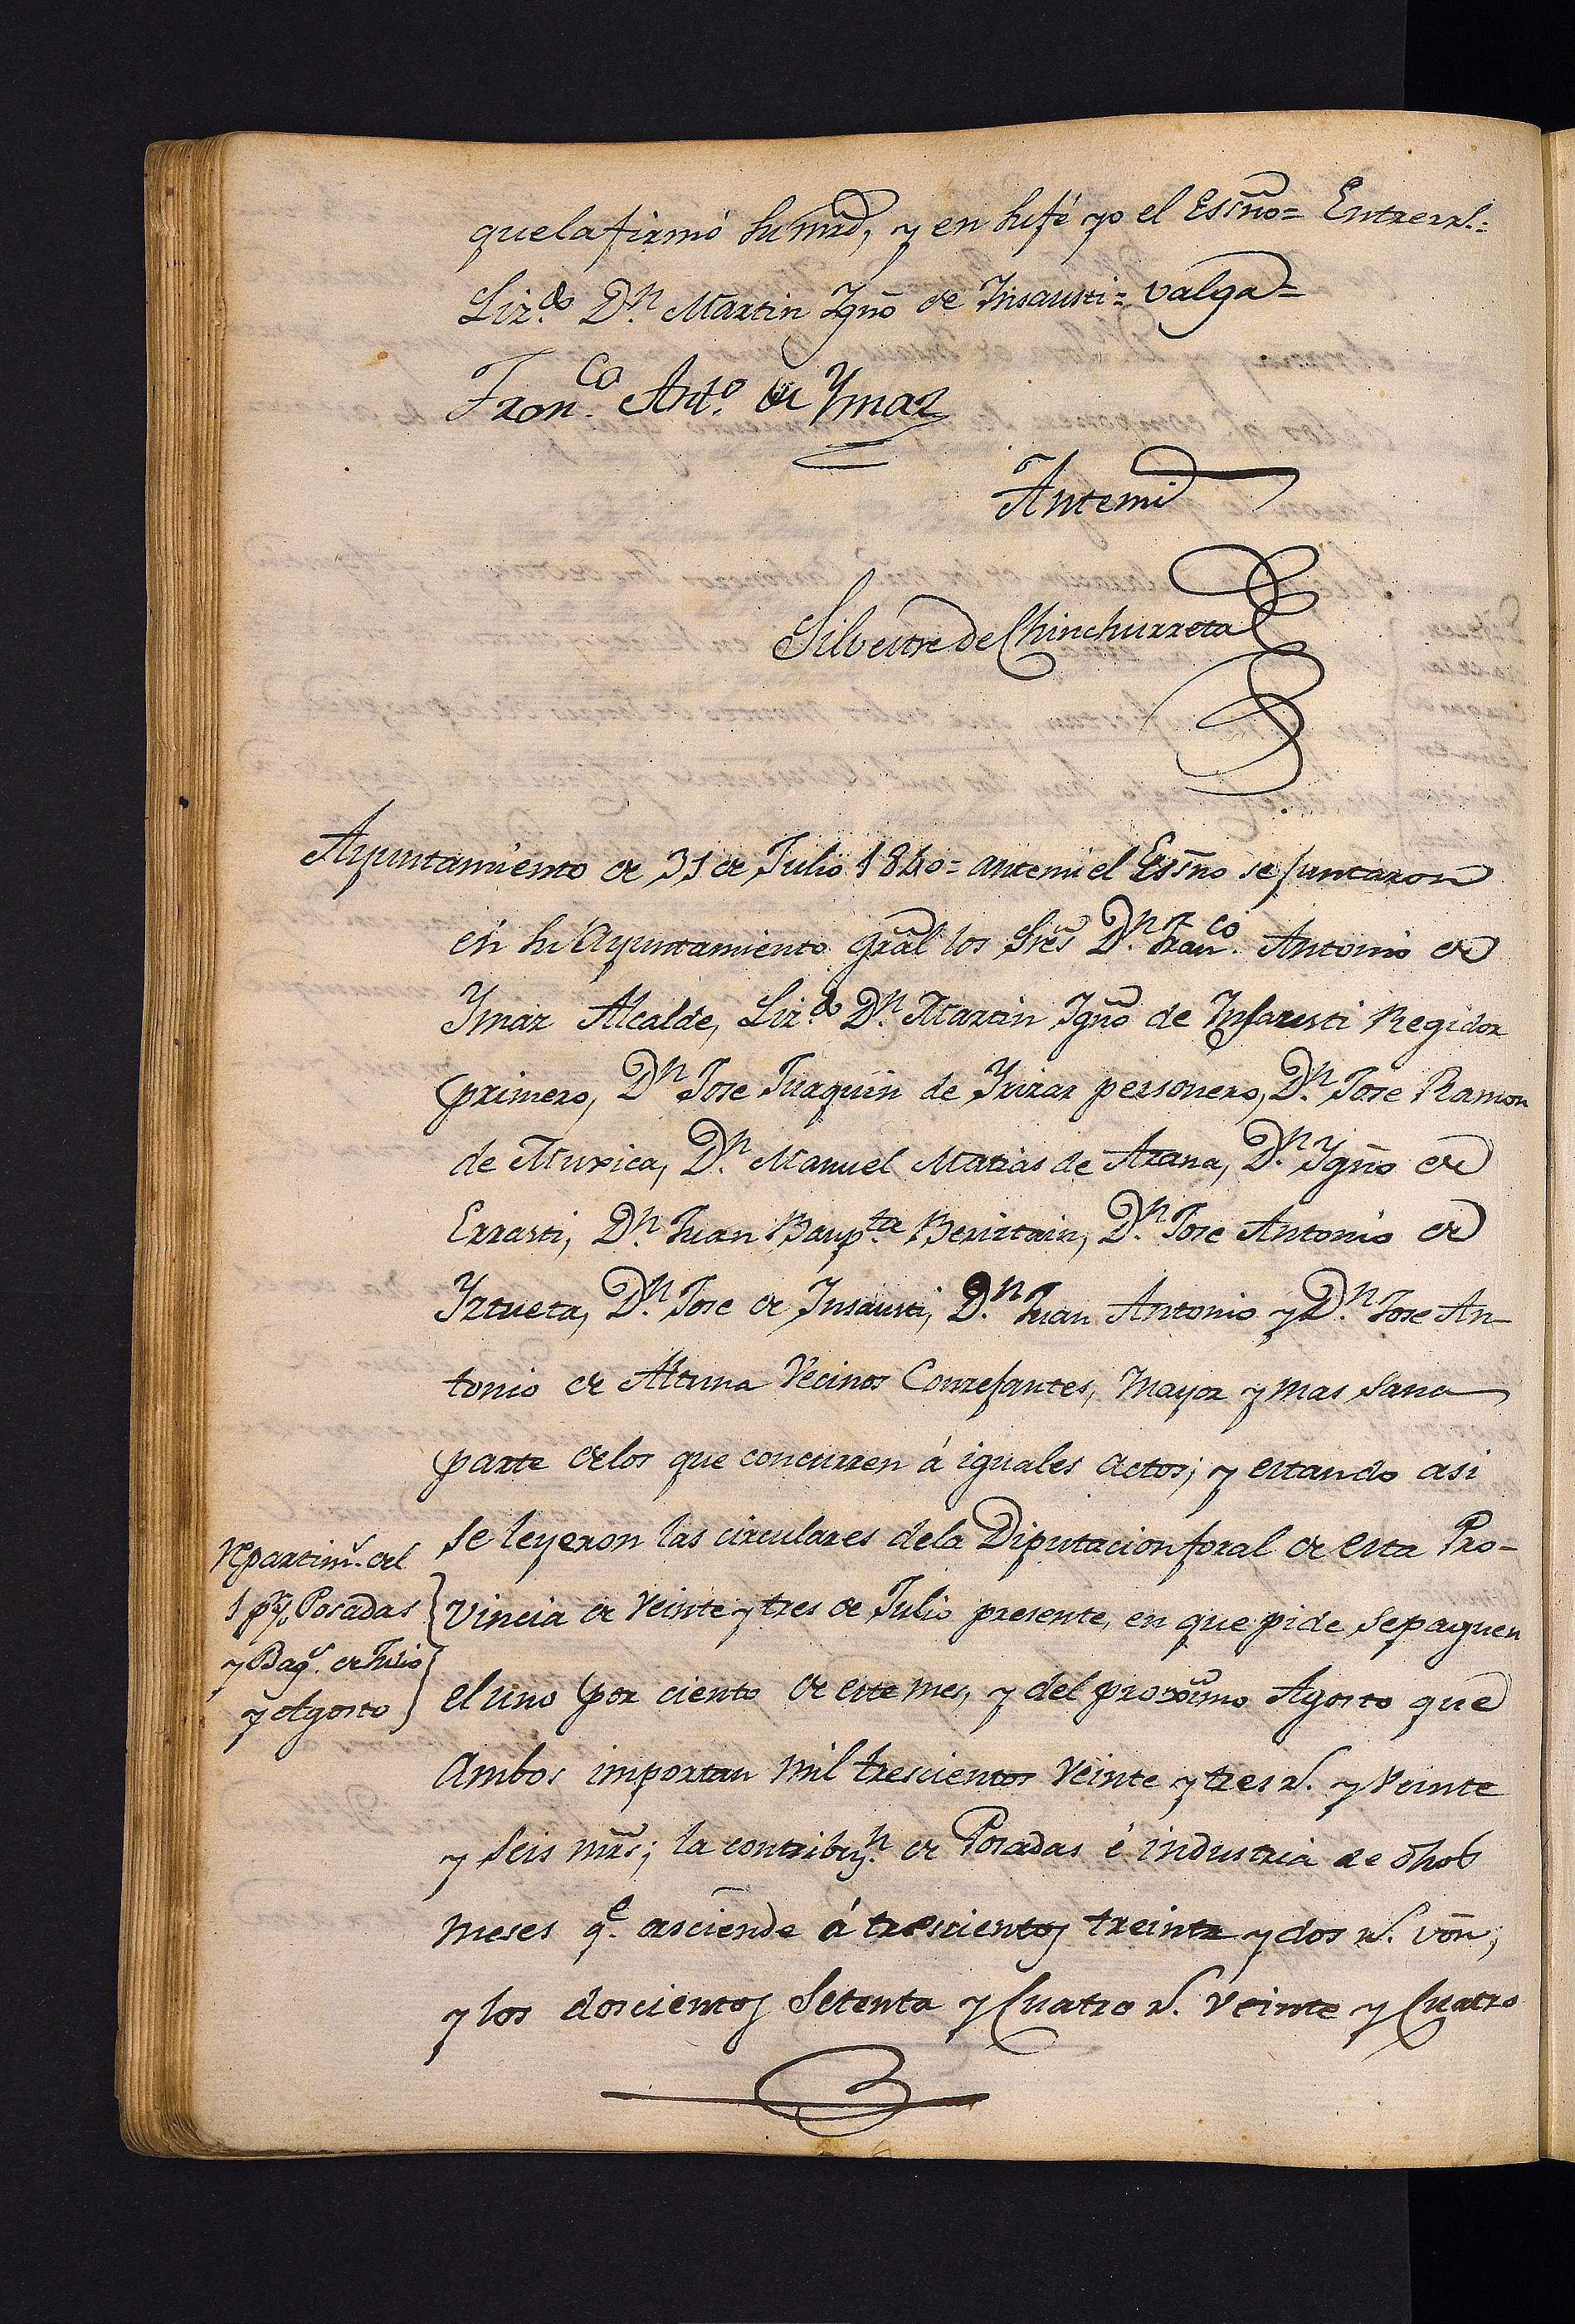 que la firmó su mrd, y en su fé yo el Essno = Entrerrs =
Liz.do D.n Martin Ygno de Insausti = valga =
Fran.co Ant.o de Ymaz
Antemi
Silvestre de Chinchurreta
Ayuntamiento de 31 de Julio 1840 = antemi el Essno se juntaron
en su Ayuntamiento gral los Sres D.n Fran.co Antonio de
Ymaz Alcalde, Liz.do D.n Martin Ygno de Insausti Regidor
primero, D.n Jose Juaquin de Yrizar personero, D.n Jose Ramon
de Muxica, D.n Manuel Matias de Arana, D.n Ygno de
Errasti, D.n Juan Baup.ta Beriztain, D.n Jose Antonio de
Yztueta, D.n Jose de Insausti, D.n Juan Antonio y D.n Jose An-
tonio de Altuna Vecinos Concejantes, mayor y mas sana
parte de los que concurren á iguales actos; y estando asi
se leyeron las circulares de la Diputacion foral de esta Pro-
Repartim.s del
1 p%, Posadas
y Bag.s de Julio
y Agosto
vincia de veinte y tres de Julio presente, en que pide se paguen
el uno por ciento de este mes, y del proximo Agosto que
ambos importan mil trescientos veinte y tres r.s y veinte
y seis mrs; la contribuy.n de Posadas é industria de dhos
meses q.e asciende á trescientos treinta y dos r.s von,
y los doscientos setenta y cuatro r.s veinte y cuatro